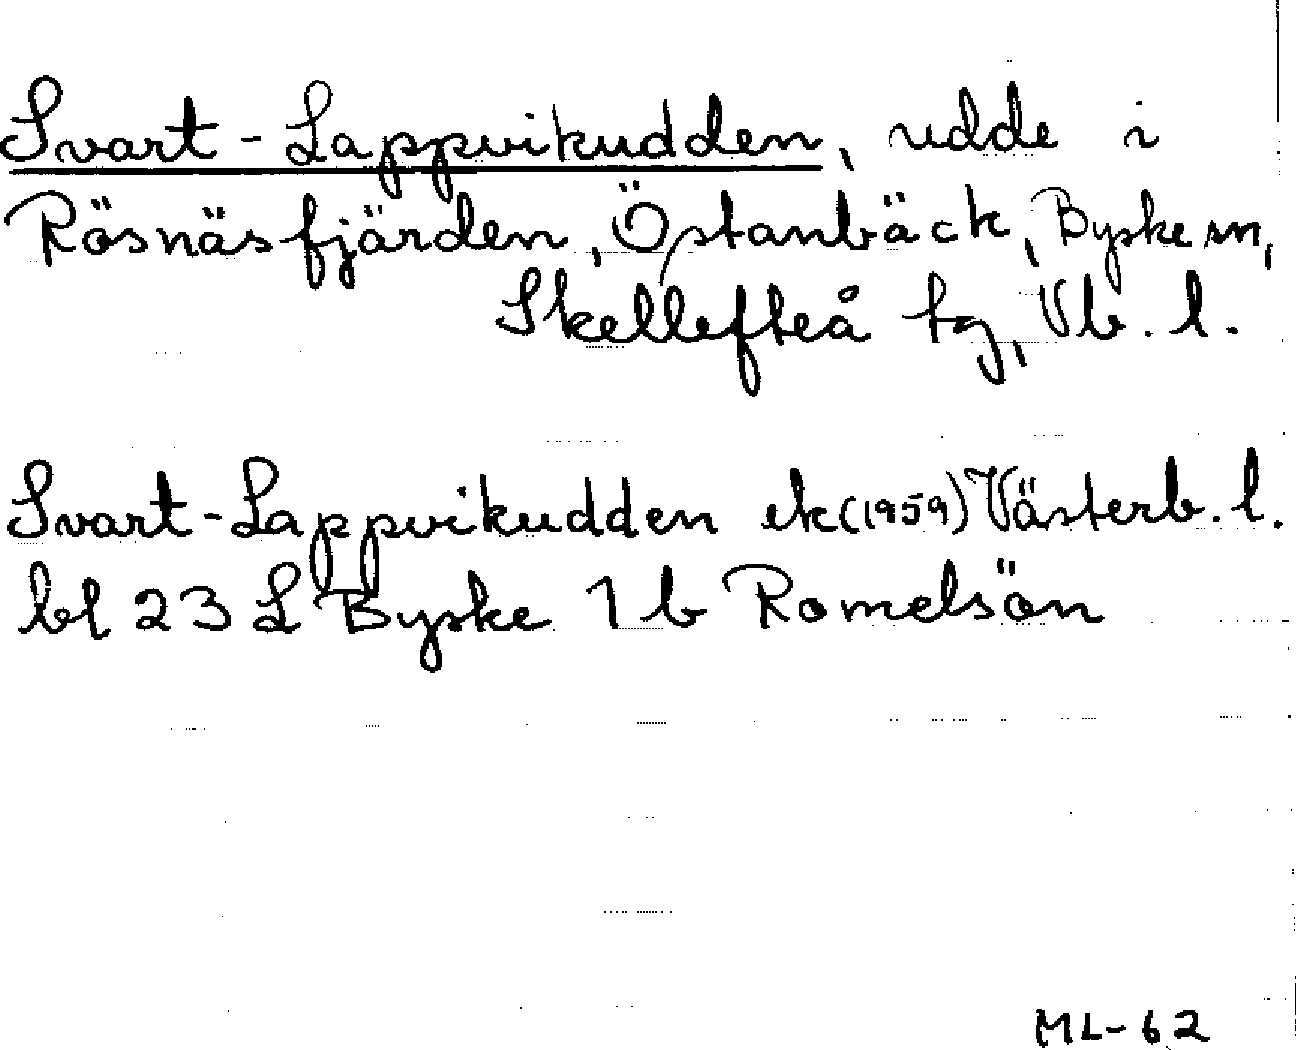 Svart-Lappvikudden, udde i
Rösnäsfjärden, Östanbäck, Byske sn,
Skellefteå tg, Vb. l.
Svart-Lappvikudden ek (1959) Västerb. l.
bl 23 L Byske 1 b Romelsön
ML-62